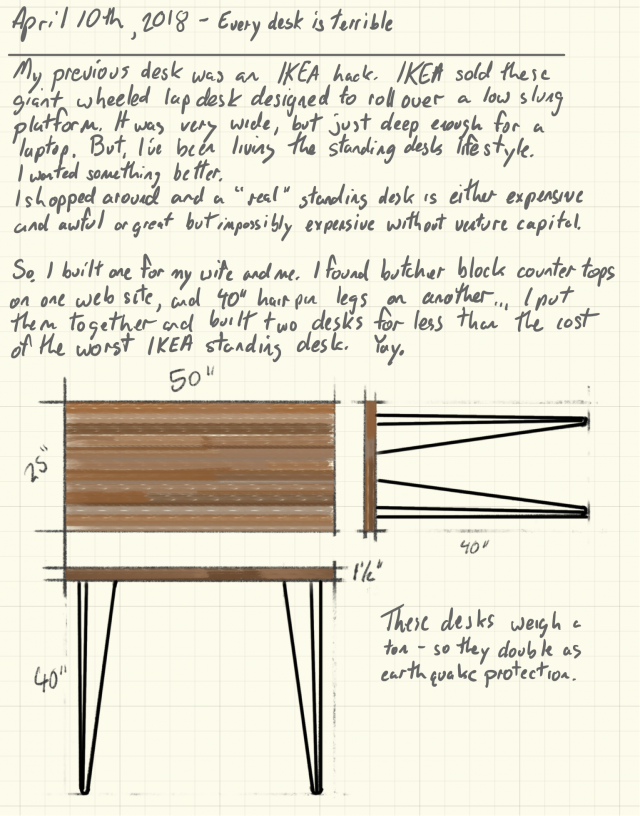 April 10th, 2018 - Every desk is terrible
My previous desk was an IKEA hack. IKEA sold these
giant wheeled lap desk designed to roll over a low slung
platform. It was very wide, but just deep enough for a
laptop. But, I've been living the standing desks lifestyle.
I wanted something better.
I shopped around and a "real" standing desk is either expensive
and awful or great but impossibly expensive without venture capital.
So, I built one for my wife and me. I found butcher block counter tops
on one web site, and 40" hair pin legs on another... I put
them together and built two desks for less than the cost
of the worst IKEA standing desk. Yay.
50"
25"
40"
1½"
40"
These desks weigh a
ton - so they double as
earthquake protection.